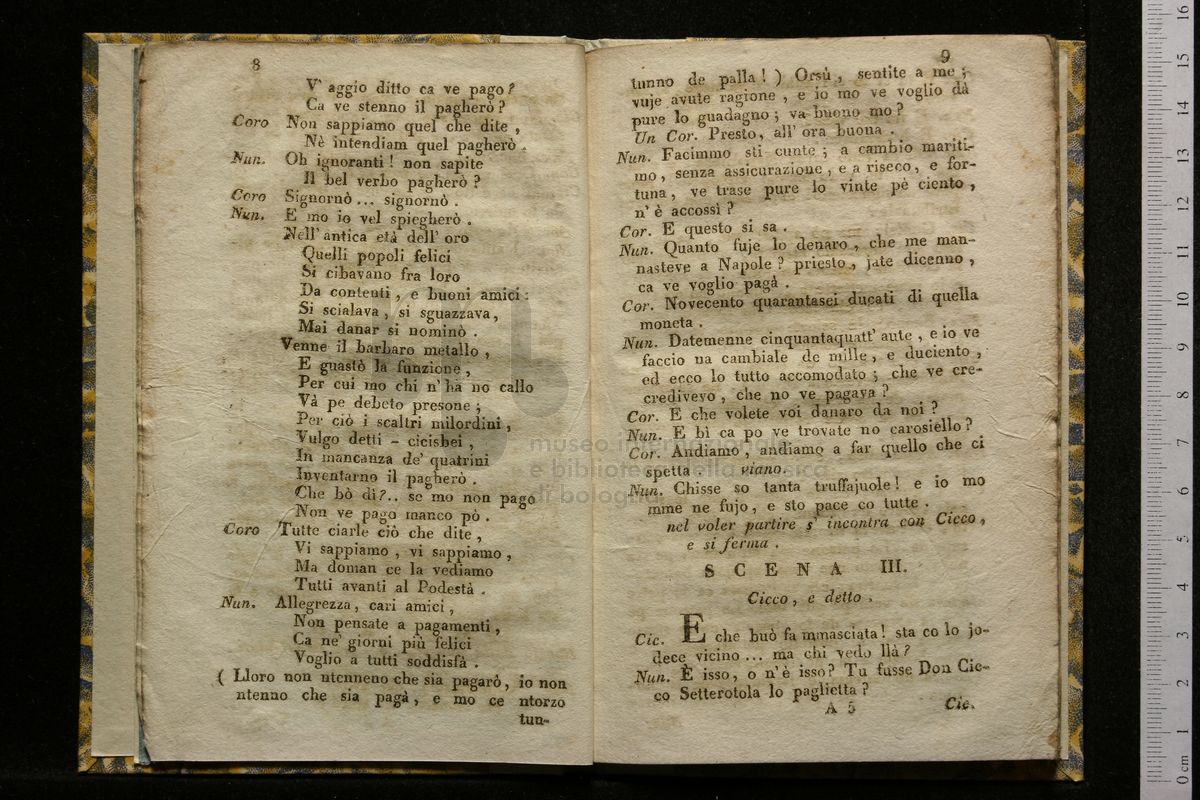 8
V' aggio ditto ca ve pago?
Ca ve stenno il pagherò?
Coro Non sappiamo quel che dite,
Nè intendiam quel pagherò.
Nun. Oh ignoranti! non sapite
Il bel verbo pagherò?
Coro Signornò... signornò.
Nun. E mo io vel spiegherò.
Nell' antica età dell' oro
Quelli popoli felici
Si cibavano fra loro
Da contenti, e buoni amici:
Si scialava, si sguazzava,
Mai danar si nominò.
Venne il barbaro metallo,
E guastò la funzione,
Per cui mo chi n' ha no callo
Và pe debeto presone;
Per ciò i scaltri milordini,
Vulgo detti - cicisbei,
In mancanza de' quatrini
Inventarno il pagherò.
Che bò dì?.. se mo non pago
Non ve pago manco pò.
Coro Tutte ciarle ciò che dite,
Vi sappiamo, vi sappiamo,
Ma doman ce la vediamo
Tutti avanti al Podestà.
Nun. Allegrezza, cari amici,
Non pensate a pagamenti,
Ca ne' giorni più felici
Voglio a tutti soddisfà.
( Lloro non ntenneno che sia pagarò, io non
ntenno che sia pagà, e mo ce ntorzo
tun-
9
tunno de palla! ) Orsù, sentite a me;
vuje avute ragione, e io mo ve voglio dà
pure lo guadagno; va buono mo?
Un Cor. Presto, all' ora buona.
Nun. Facimmo sti cunte; a cambio mariti-
mo, senza assicurazione, e a riseco, e for-
tuna, ve trase pure lo vinte pè ciento,
n' è accossì?
Cor. E questo si sa.
Nun. Quanto fuje lo denaro, che me man-
nasteve a Napole? priesto, jate dicenno,
ca ve voglio pagà.
Cor. Novecento quarantasei ducati di quella
moneta.
Nun. Datemenne cinquantaquatt' aute, e io ve
faccio na cambiale de mille, e duciento,
ed ecco lo tutto accomodato; che ve cre-
credivevo, che no ve pagava?
Cor. E che volete voi danaro da noi?
Nun. E bì ca po ve trovate no carosiello?
Cor. Andiamo, andiamo a far quello che ci
spetta. viano.
Nun. Chisse so tanta truffajuole! e io mo
mme ne fujo, e sto pace co tutte.
nel voler partire s' incontra con Cicco,
e si ferma.
SCENA III.
Cicco, e detto.
Cic. E che buò fa mmasciata! sta co lo jo-
dece vicino... ma chi vedo llà?
Nun. È isso, o n' è isso? Tu fusse Don Cic-
co Setterotola lo paglietta?
A 5
Cic.
museo internazionale
e biblioteca della musica
di bologna
0 cm 1 2 3 4 5 6 7 8 9 10 11 12 13 14 15 16